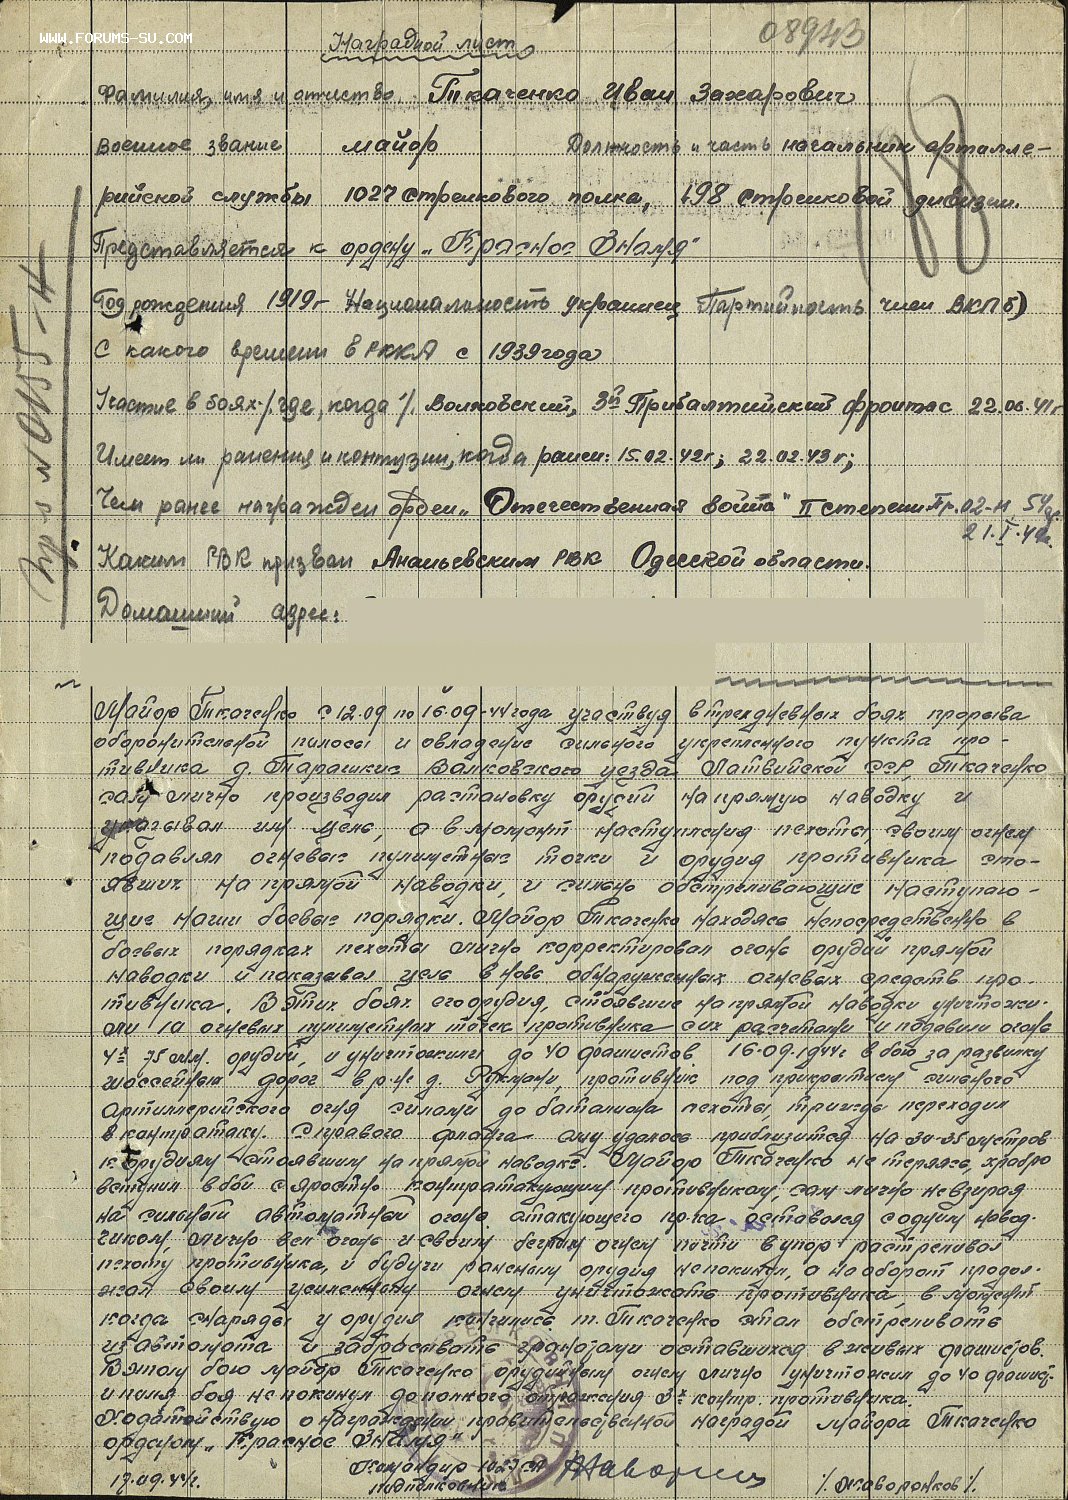 WWW.FORUMS-SU.COM
08943
Наградной лист
188
Фамилия, имя и отчество Ткаченко Иван Захарович
военное звание майор Должность и часть начальник артилле-
рийской службы 1027 стрелкового полка, 198 стрелковой дивизии.
Представляется к ордену „Красное Знамя"
Год рождения 1919г Национальность украинец Партийность член ВКПб)
С какого времени в РККА с 1939 года
Участие в боях /где, когда/. Волховский, 3й Прибалтийский фронт с 22.06.41г
Имеет ли ранения и контузии, когда ранен: 15.02.42г; 22.02.43г;
Чем ранее награжден орден „Отечественная война" II степени Пр. 02-н 54
21.I.44г.
Каким РВК призван Ананьевским РВК Одесской области.
Домашний адрес:
Пр-з N 0155-н
Майор Ткаченко с 12.09 по 16.09-44 года участвуя в трехдневных боях прорыва
оборонительной полосы и овладение сильного укрепленного пункта про-
тивника д. Тарашкис Валковского уезда Латвийской ССР, Ткаченко
сам лично производил растановку орудий на прямую наводку и
указывал им цель, а в момент наступления пехоты своим огнем
подавлял огневые пулиметные точки и орудия противника сто-
явших на прямой наводки, и сильно обстреливающие наступаю-
щие наши боевые порядки. Майор Ткаченко находясь непосредственно в
боевых порядках пехоты лично корректировал огонь орудий прямой
наводки и показывал цель вновь обнаруженных огневых средств про-
тивника. В этих боях его орудия, стоявшие на прямой наводки уничтожи-
ли 10 огневых пулиметных точек противника с их расчетами и подавили огонь
4х 75 мм. орудий, и уничтожили до 40 фашистов 16.09.1944г в бою за развилку
шоссейных дорог в р-не д. противник под прикрытием сильного
артиллерийского огня силами до баталиона пехоты, трижды переходил
в контратаку. С правого фланга ему удалось приблизится на 30-35 метров
к орудиям стоявшим на прямой наводке. Майор Ткаченко не теряясь, храбро
вступил в бой с яростно контратакующим противником, сам лично невзирая
на сильный автоматный огонь атакующего пр-ка оставался с одним навод-
чиком, лично вел огонь и своим беглым огнем почти в упор растреливал
пехоту противника, и будучи раненым орудия не покинул, а наоборот продол-
жал своим усиленным огнем уничтожать противника, в момент
когда снаряды у орудия кончились т. Ткаченко стал обстреливать
из автомата и забрасывать гранатами оставшихся в живых фашистов.
В этом бою майор Ткаченко орудийным огнем лично уничтожил до 40 фашист.
и поля боя не покинул до полного отражения 3х контр. противника.
Ходатайствую о награждении правительственной наградой майора Ткаченко
орденом „Красное Знамя"
Командир 1027 СП
подполковник
/Жаворонков/.
17.09.44г.